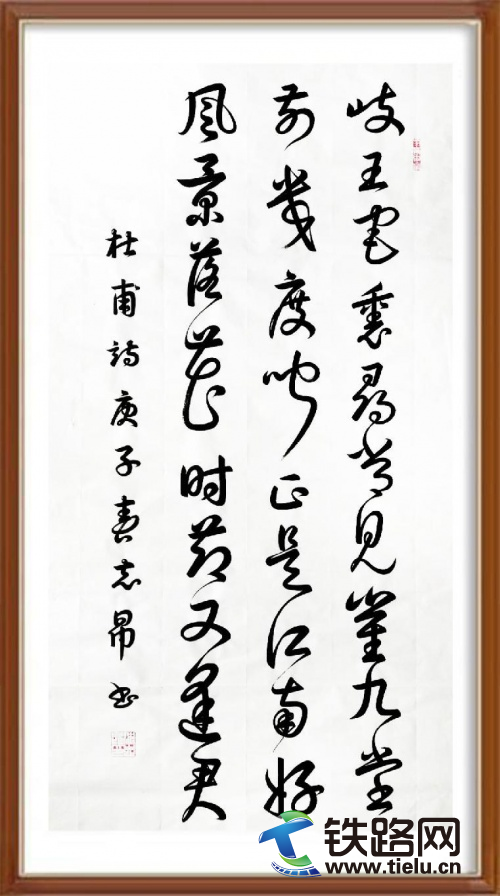 岐王宅裏尋常見崔九堂
前幾度聞正是江南好
風景落花時節又逢君
杜甫詩庚子春志昂书
铁路网
www.tielu.cn